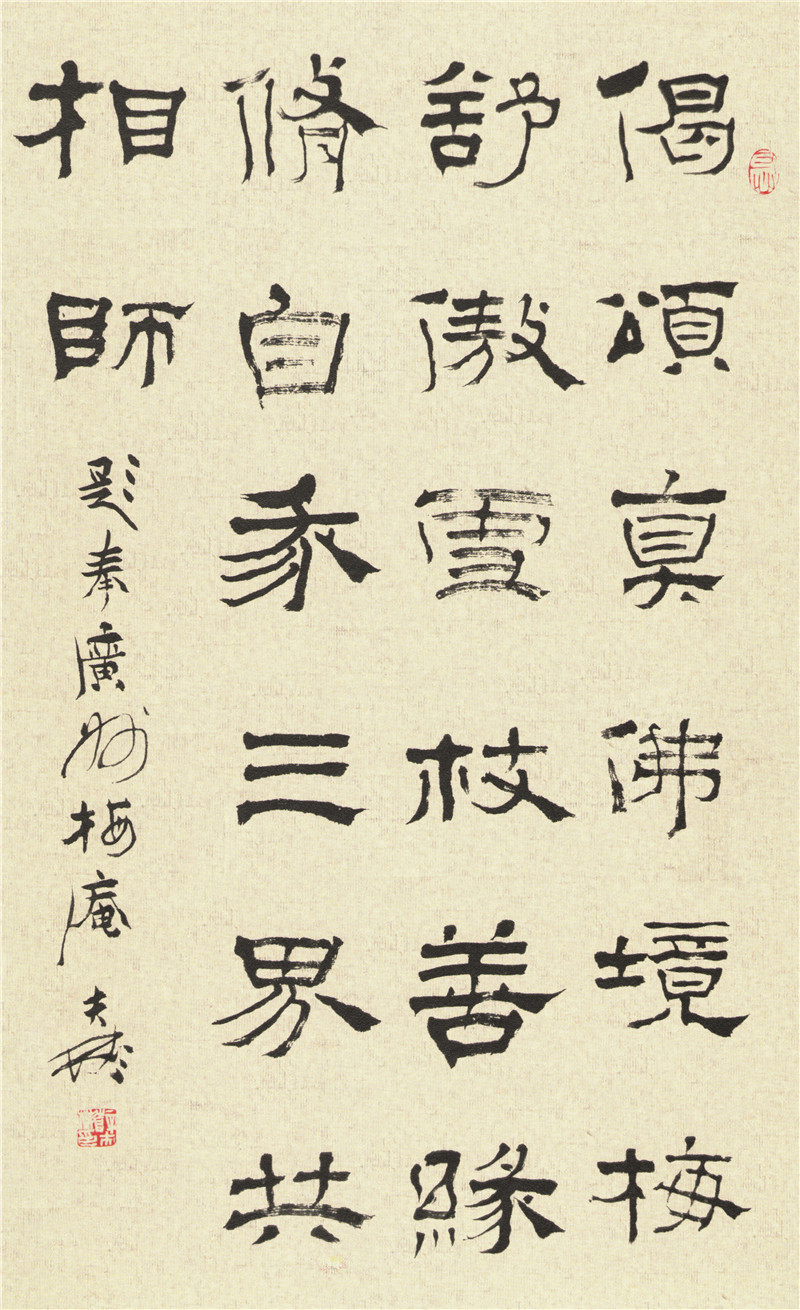 偈頌真佛境梅
舒傲雪枝善緣
脩自家三界共
相師
題奉廣州梅庵